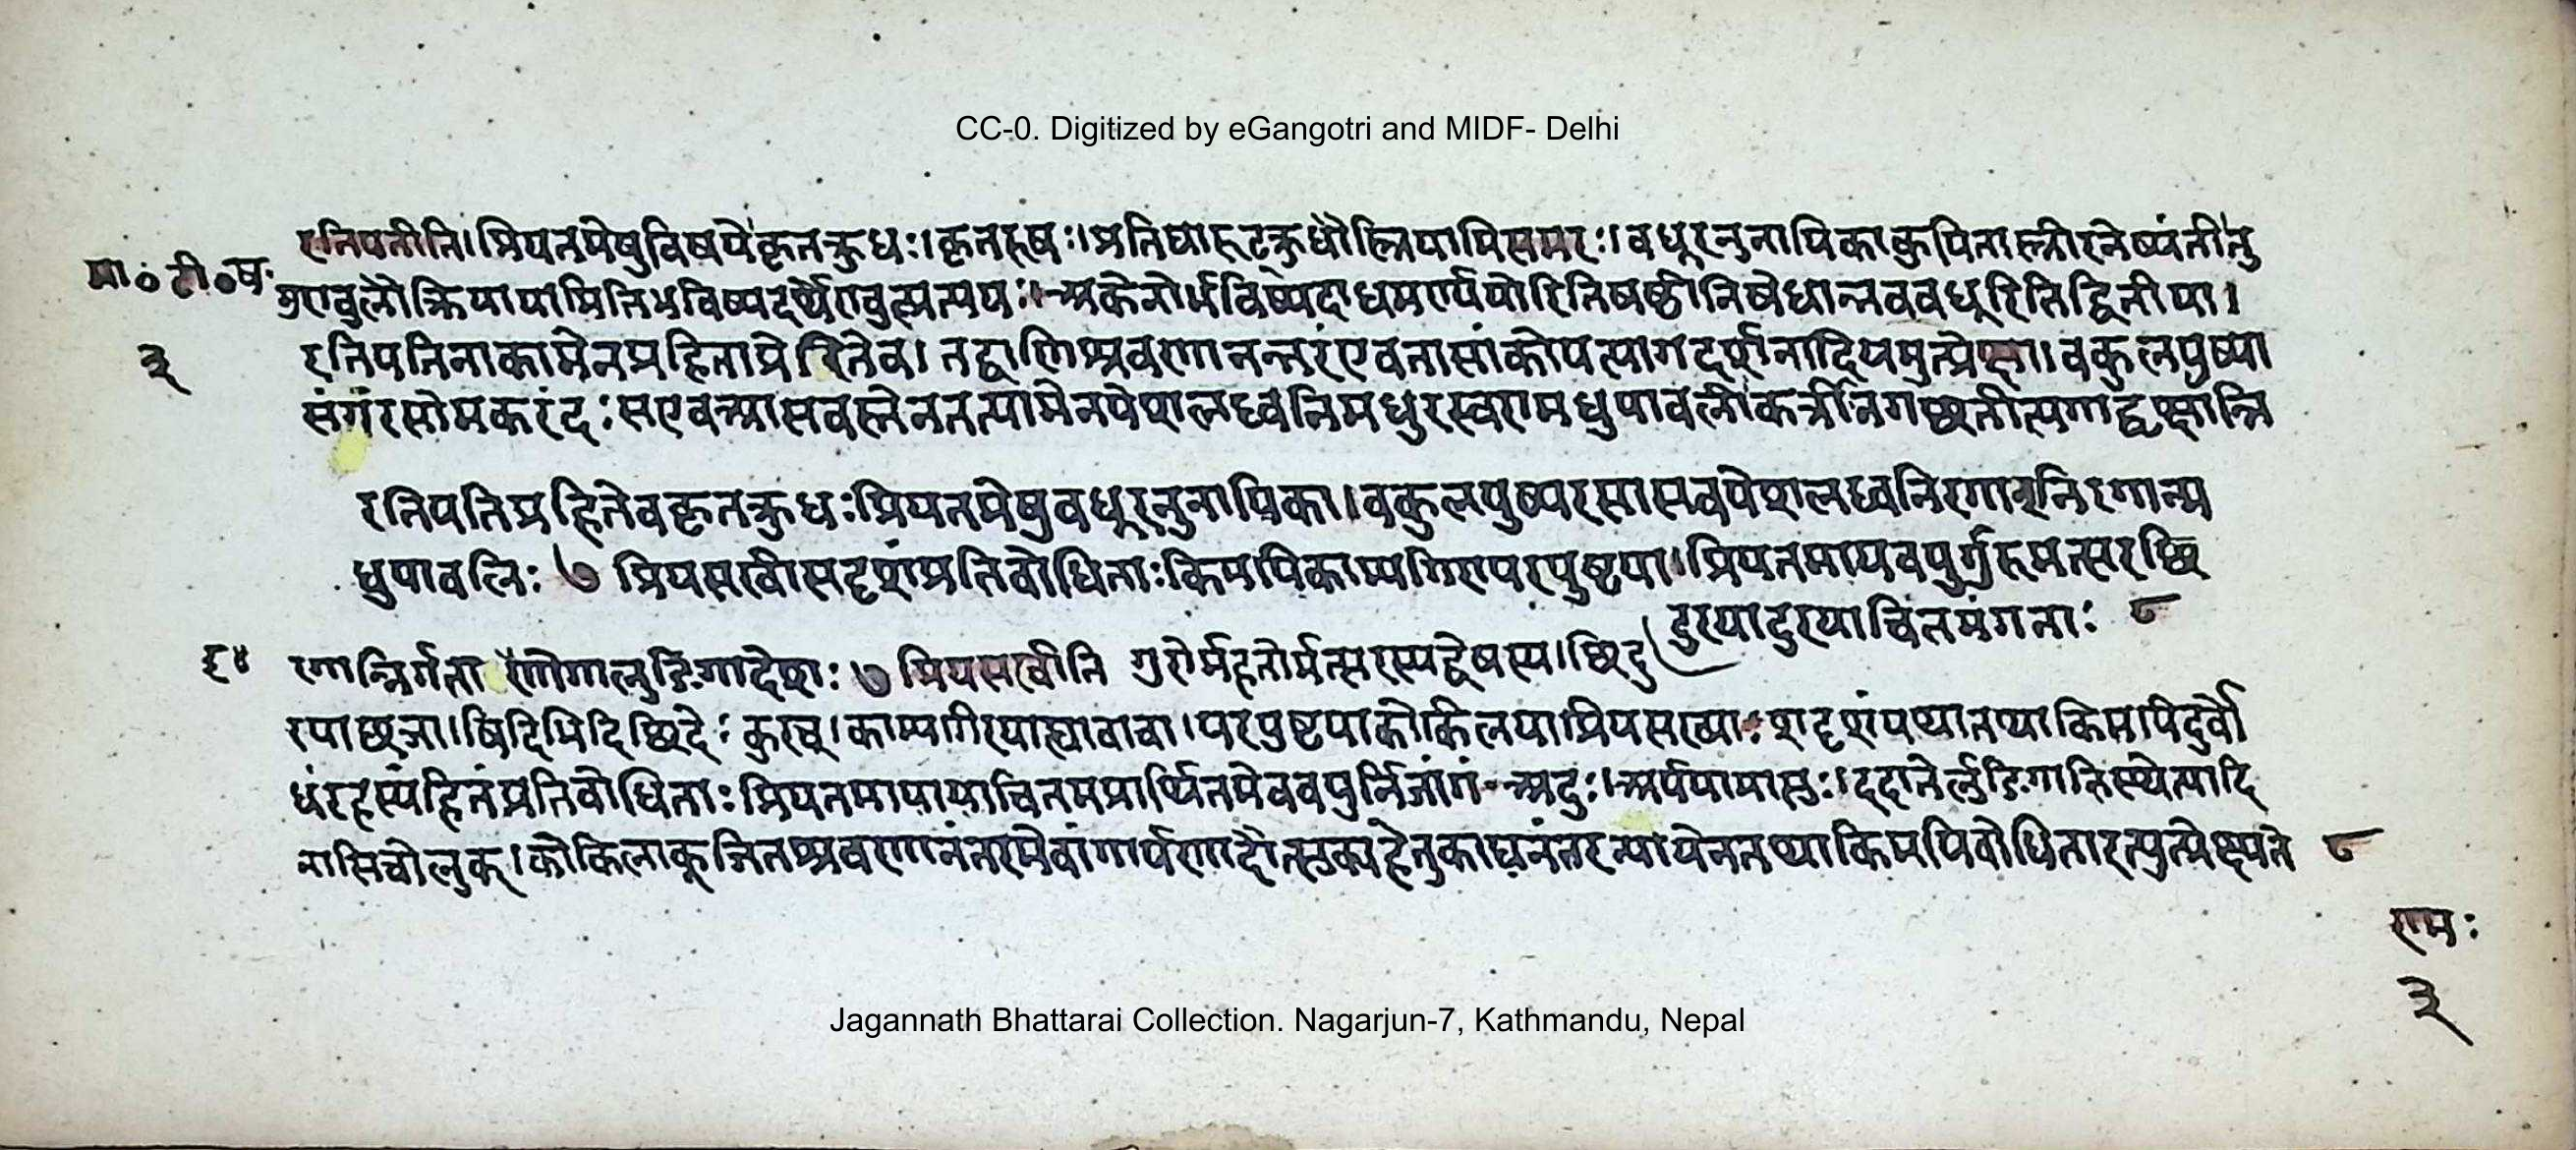 CC-0. Digitized by eGangotri and MIDF- Delhi
रतिपतीति। प्रियतमेषुविषयेकृतक्रुधः। कृतरुषः। प्रतिघारुट्क्रुधौस्त्रियामित्यमरः। वधूरनुनायिकाकुपितास्त्रीरनेष्यंतीतु
मा॰ टी॰ ष॰
मुण्वुलौक्रियायामितिभविष्यदर्थेण्वुल्प्रत्ययः। अकेनोर्भविष्यदाधमर्ण्ययोरितिषष्ठीनिषेधान्नववधूरितिद्वितीया।
३
रतिपतिनाकामेनप्रहिताप्रेरितेव। तद्वाणिश्रवणानन्तरंएवतासांकोपत्यागदर्शनादियमुत्प्रेक्षा। वकुलपुष्पा
संगंरसोमकरंदः सएवआसवस्तेनतत्पामेनपेशलध्वनिमधुरस्वरामधुपावलीकर्त्रीनगच्छतीत्यगाद्वृक्षान्नि
रतिपतिप्रहितेवकृतक्रुधः प्रियतमेषुवधूरनुनायिका। वकुलपुष्परसासवपेशलध्वनिरगान्निरगान्म
धुपावलिः ७ प्रियसखीसदृशंप्रतिवोधिताः किमपिकाम्यगिरापरपुष्टया। प्रियतमायवपुर्गुरुमत्सरच्छि
दुरयादुरयाचितमंगनाः ८
६४
रगान्निर्गता इणोगालुङिगादेशः ७ प्रियसखीति गुरोर्महतोर्मत्सरस्यद्वेषस्य। छिदु
रयाछेत्र्या। विदिभिदिछिदेः कुरच्। काम्यगिरयाह्यावाचा। परपुष्टयाकोकिलयाप्रियसख्याः शदृशंयथातथाकिमपिदुर्वो
धंरहस्यंहितंप्रतिवोधिताः प्रियतमायायाचितमप्रार्थितमेववपुर्निजांगं अदुः। अर्पयामासुः। ददातेर्लुङिगातिस्थेत्यादि
नासिचोलुक्। कोकिलाकूजितश्रवणानंतरमेवांगार्पणादौत्सुक्यहेतुकाघनंतरन्यायेनतथाकिमपिवोधितारत्युत्प्रेक्ष्यते ८
रामः
३
Jagannath Bhattarai Collection. Nagarjun-7, Kathmandu, Nepal